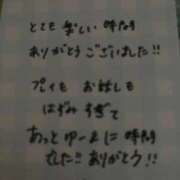 とても 楽しい 時間
ありがとう ございました!!
プレイも お話しも
はずみ すぎて
あっとゆーまに 時間
した!! ありがとう!!